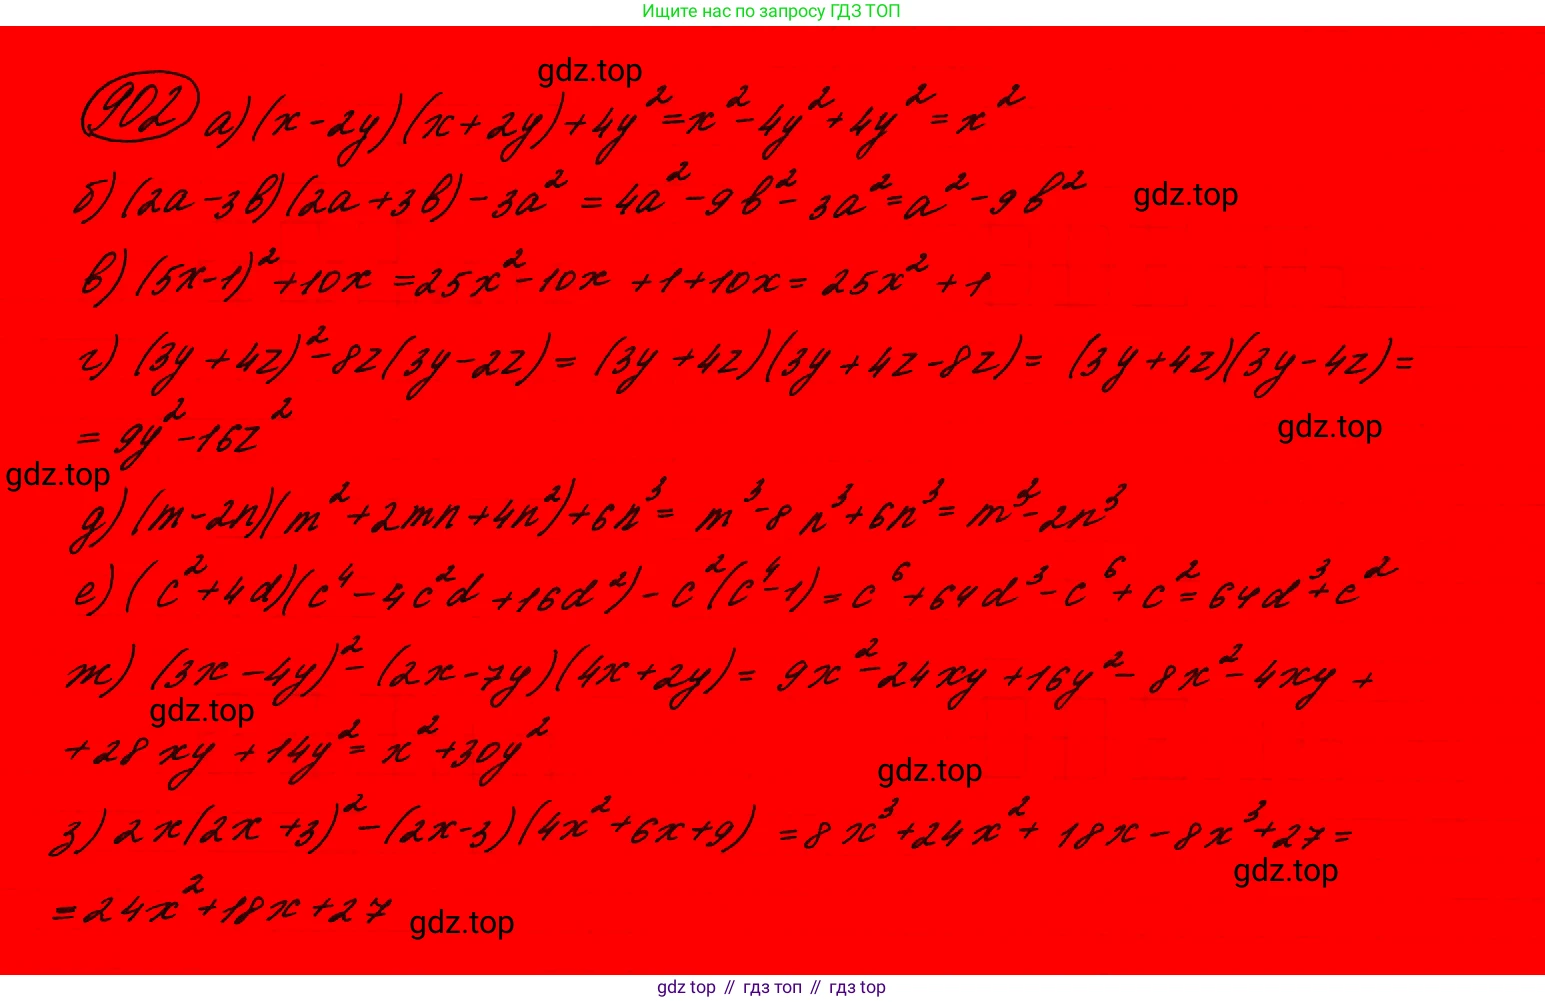 Ищите нас по запросу ГДЗ ТОП
gdz.top
902 а) (x - 2y)(x + 2y) + 4y² = x² - 4y² + 4y² = x²
б) (2a - 3b)(2a + 3b) - 3a² = 4a² - 9b² - 3a² = a² - 9b²
gdz.top
в) (5x - 1)² + 10x = 25x² - 10x + 1 + 10x = 25x² + 1
г) (3y + 4z)² - 8z(3y - 2z) = (3y + 4z)(3y + 4z - 8z) = (3y + 4z)(3y - 4z) =
= 9y² - 16z²
gdz.top
gdz.top
д) (m - 2n)(m² + 2mn + 4n²) + 6n³ = m³ - 8n³ + 6n³ = m³ - 2n³
е) (c² + 4d)(c⁴ - 4c²d + 16d²) - c²(c⁴ - 1) = c⁶ + 64d³ - c⁶ + c² = 64d³ + c²
ж) (3x - 4y)² - (2x - 7y)(4x + 2y) = 9x² - 24xy + 16y² - 8x² - 4xy +
gdz.top
+ 28xy + 14y² = x² + 30y²
gdz.top
з) 2x(2x + 3)² - (2x - 3)(4x² + 6x + 9) = 8x³ + 24x² + 18x - 8x³ + 27 =
gdz.top
= 24x² + 18x + 27
gdz.top
gdz top // гдз топ // гдз top